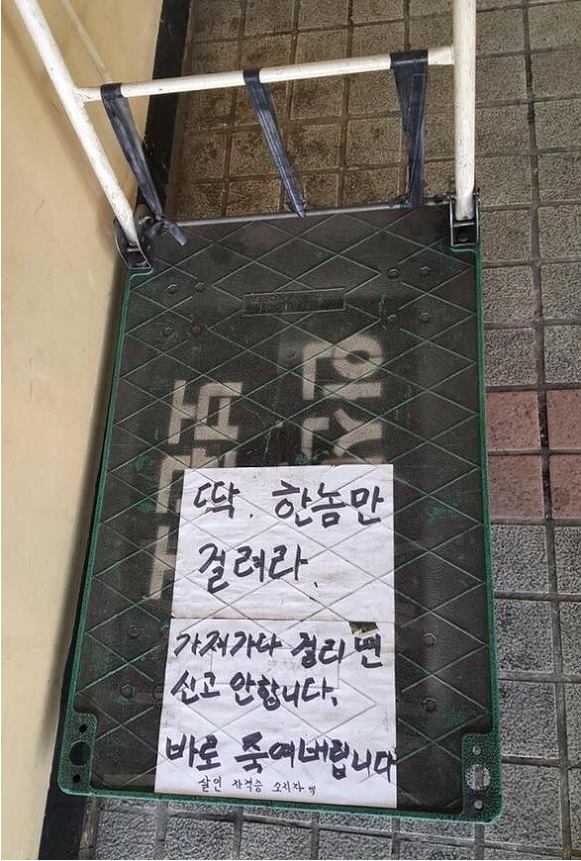 딱. 한놈만
걸려라.
가져가다 걸리면
신고 안합니다.
바로 죽여버립니다
살인 자격증 소지자